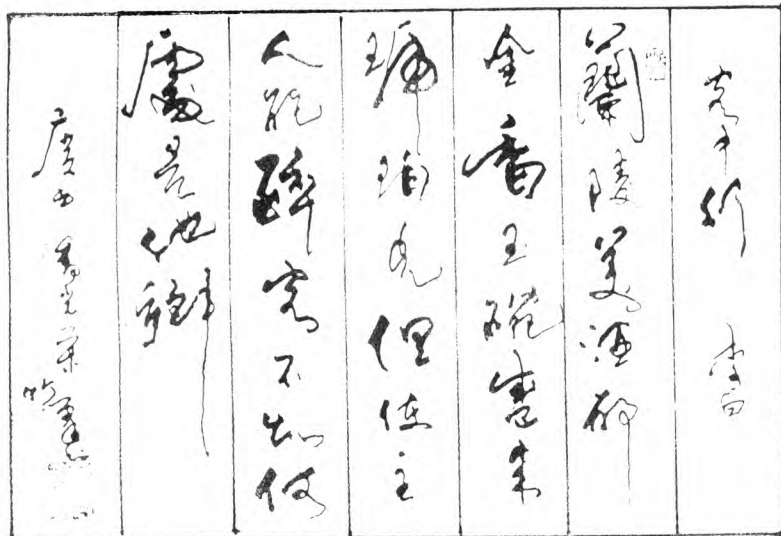 客中行 李白
蘭陵美酒郁
金香玉碗盛来
琥珀光但使主
人能醉客不知何
處是他鄉